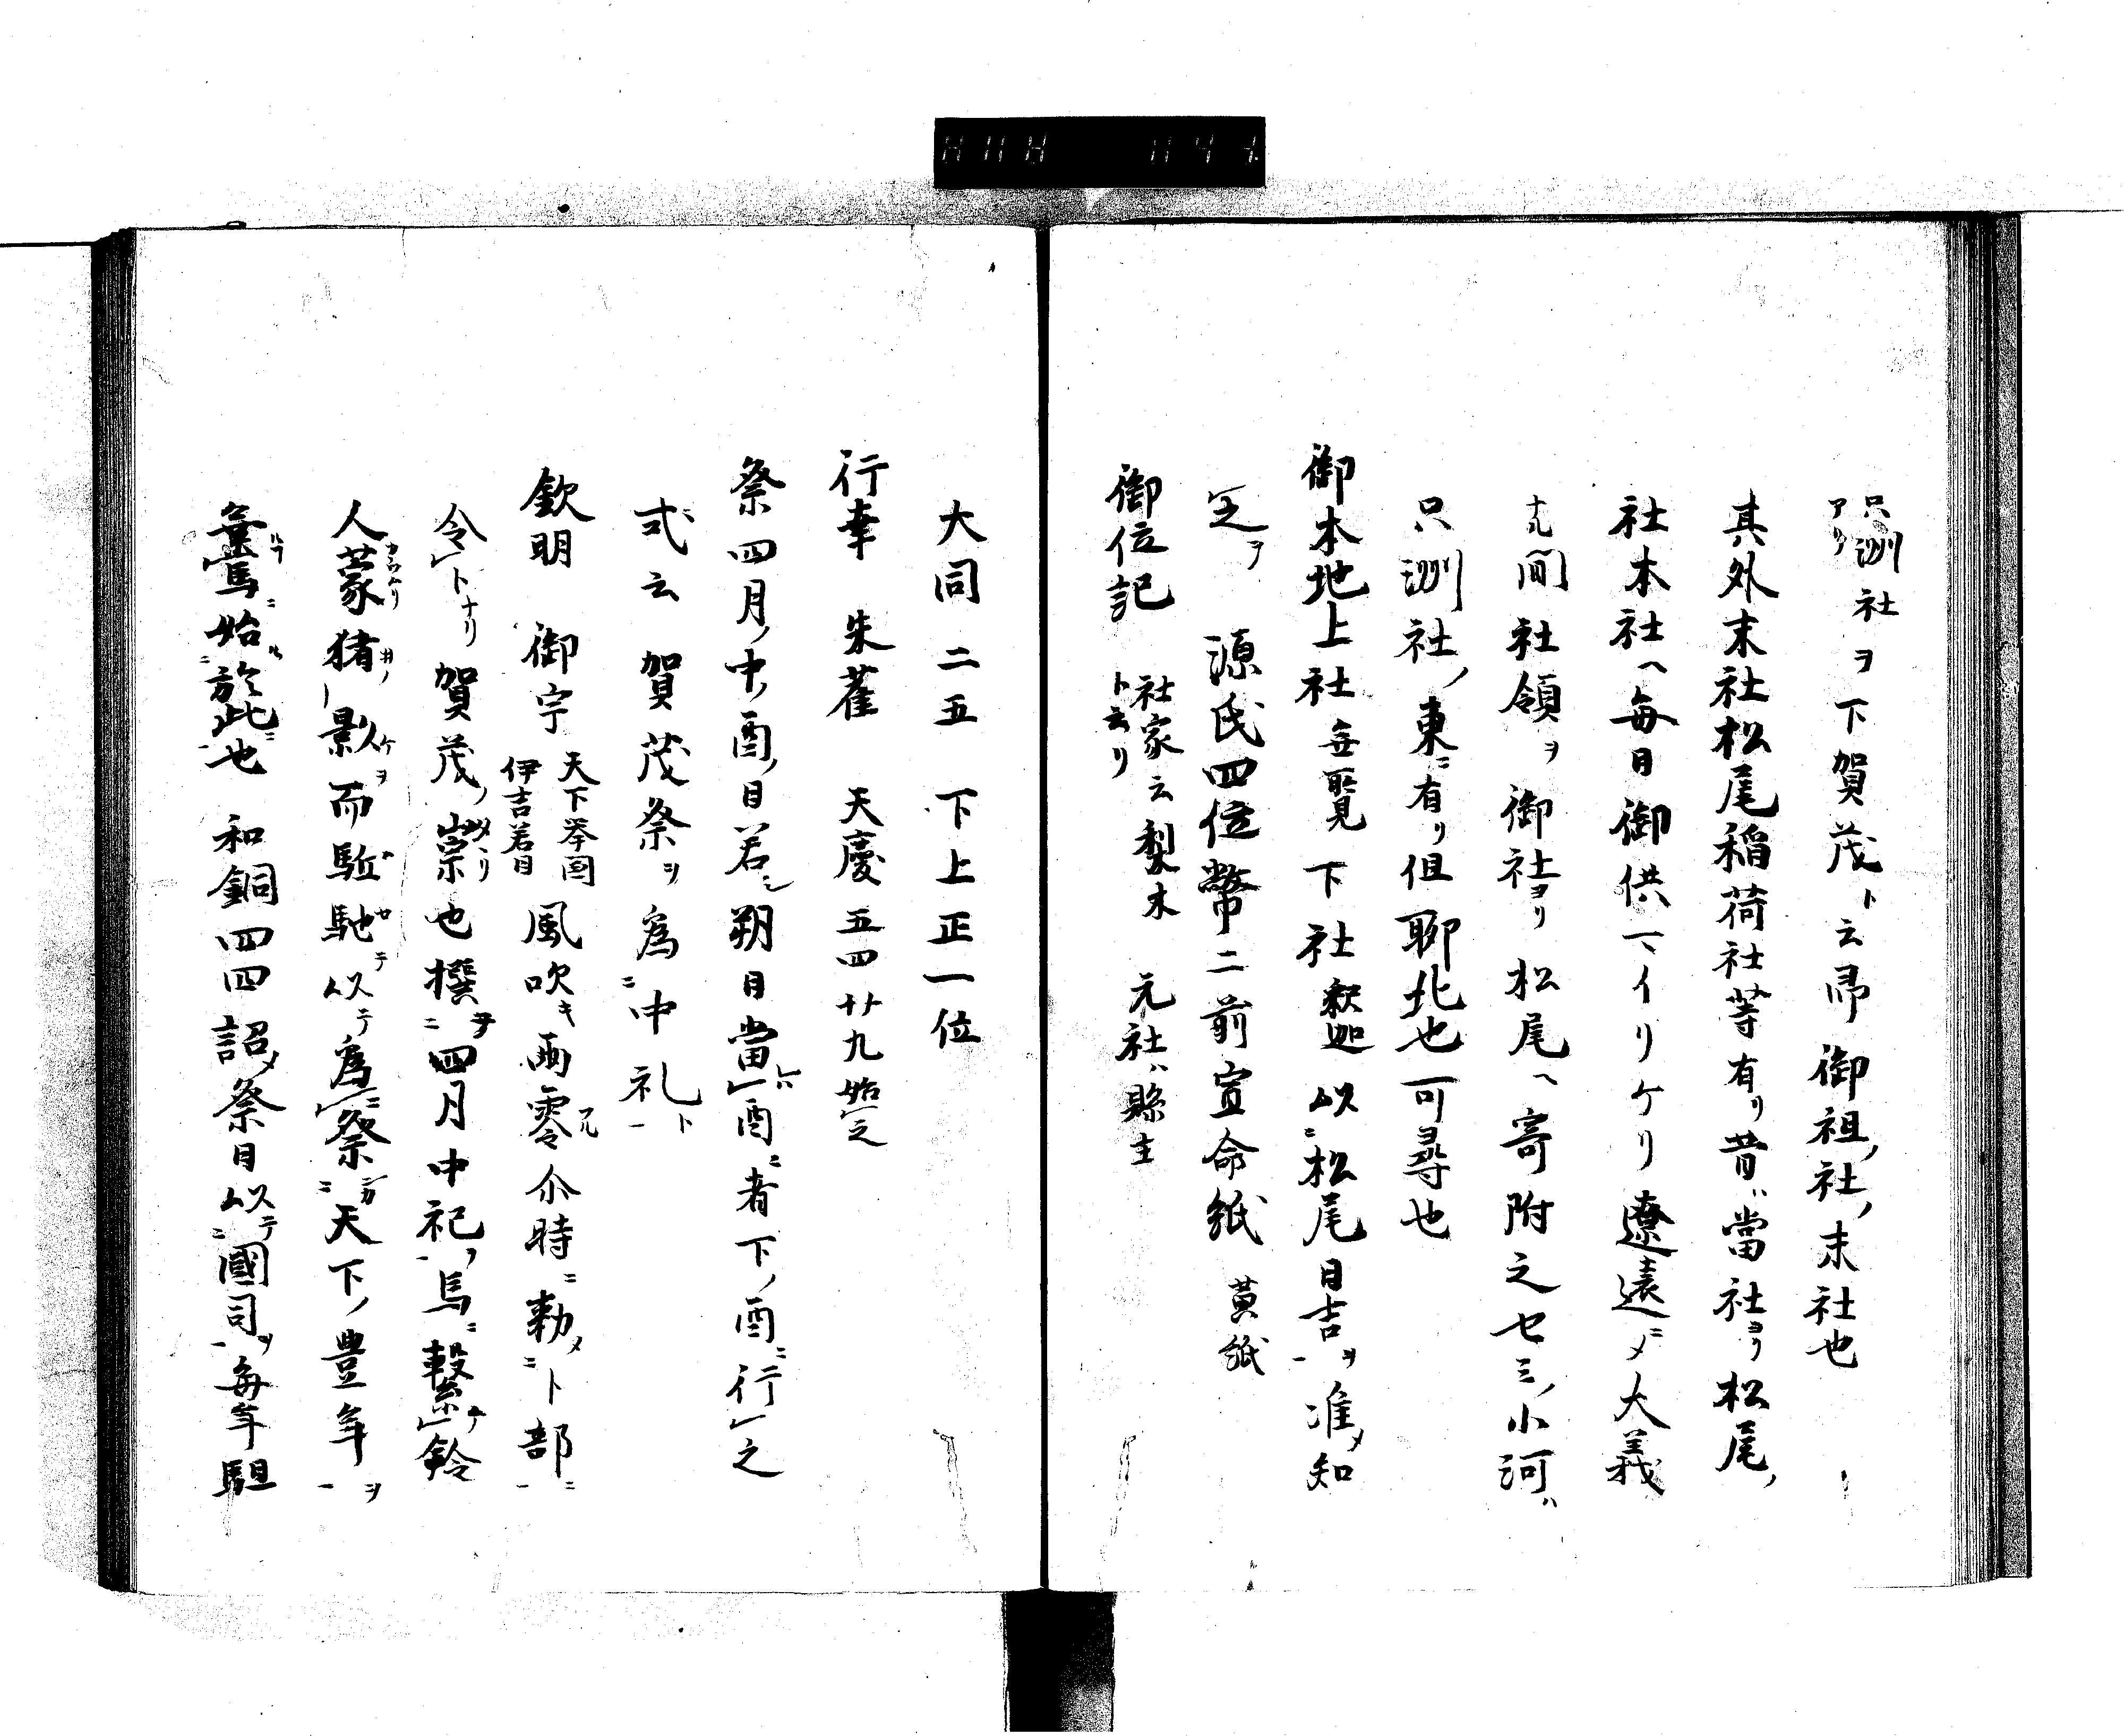 只洲社ヲ下賀茂ト云帚御祖ノ社ノ末社也
アリ
其外末社松尾稲荷社等有リ昔ハ當社ヨリ松尾ノ
社本社ヘ毎日御供マイリケリ遼遠ニメ大義
ナル間社領ヲ御社ヨリ松尾ヘ寄附之セミノ小河ハ
只洲社ノ東ニ有リ但聊北也可尋也
御本地上社無覧下社釈迦以ニ松尾日吉ヲ准メ知
之ヲ 源氏四位幣二前宣命紙 黄紙
御位記 社家云梨木 元社ハ縣主
ト云リ
大同二五 下上正一位
行幸 朱雀 天慶五四廿九始之
祭四月ノ中ノ酉ノ日若シ朔日當レハ酉ニ者下ノ酉ニ行之
式云賀茂祭ヲ為ニ中礼ト
欽明 御宇 天下挙国 風吹キ雨零ル尒時ニ勅メニト部ニ
伊吉若日
令トナリ賀茂ノ祟タヽリ也撰ヲ四月中祀ノ馬ニ繋ケ鈴
人蒙カウムリ猪ノ影ヲ而駈馳テ以テ為祭ニ天下ノ豊年ヲ
始於此也 和銅四四詔メ祭日以テ國司ヲ毎年